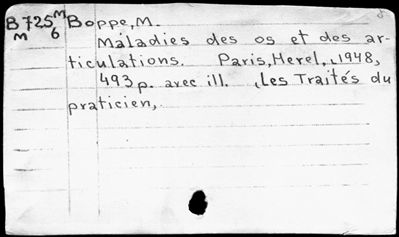 B 725 M Boppe, M.
M 6
Maladies des os et des ar-
ticulations. Paris, Herel, 1948,
493 p. avec ill. (Les Traités du
praticien,